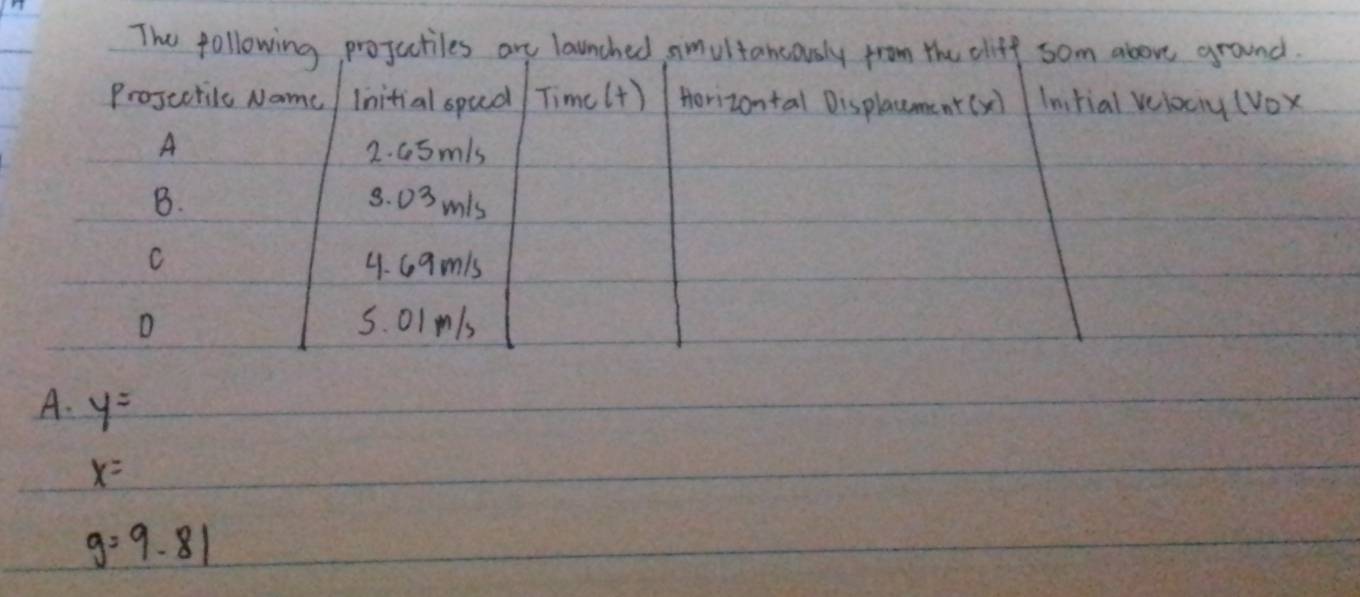 The following projectiles are launched simultaneously from the cliff 50m above ground.
Projectile Name Initial speed Time (t) Horizontal Displacement (x) Initial Velociy (Vox
A 2.65m/s
B. 3.03 m/s
C 4.69m/s
D 5.01 m/s
A. y=
x=
g=9.81